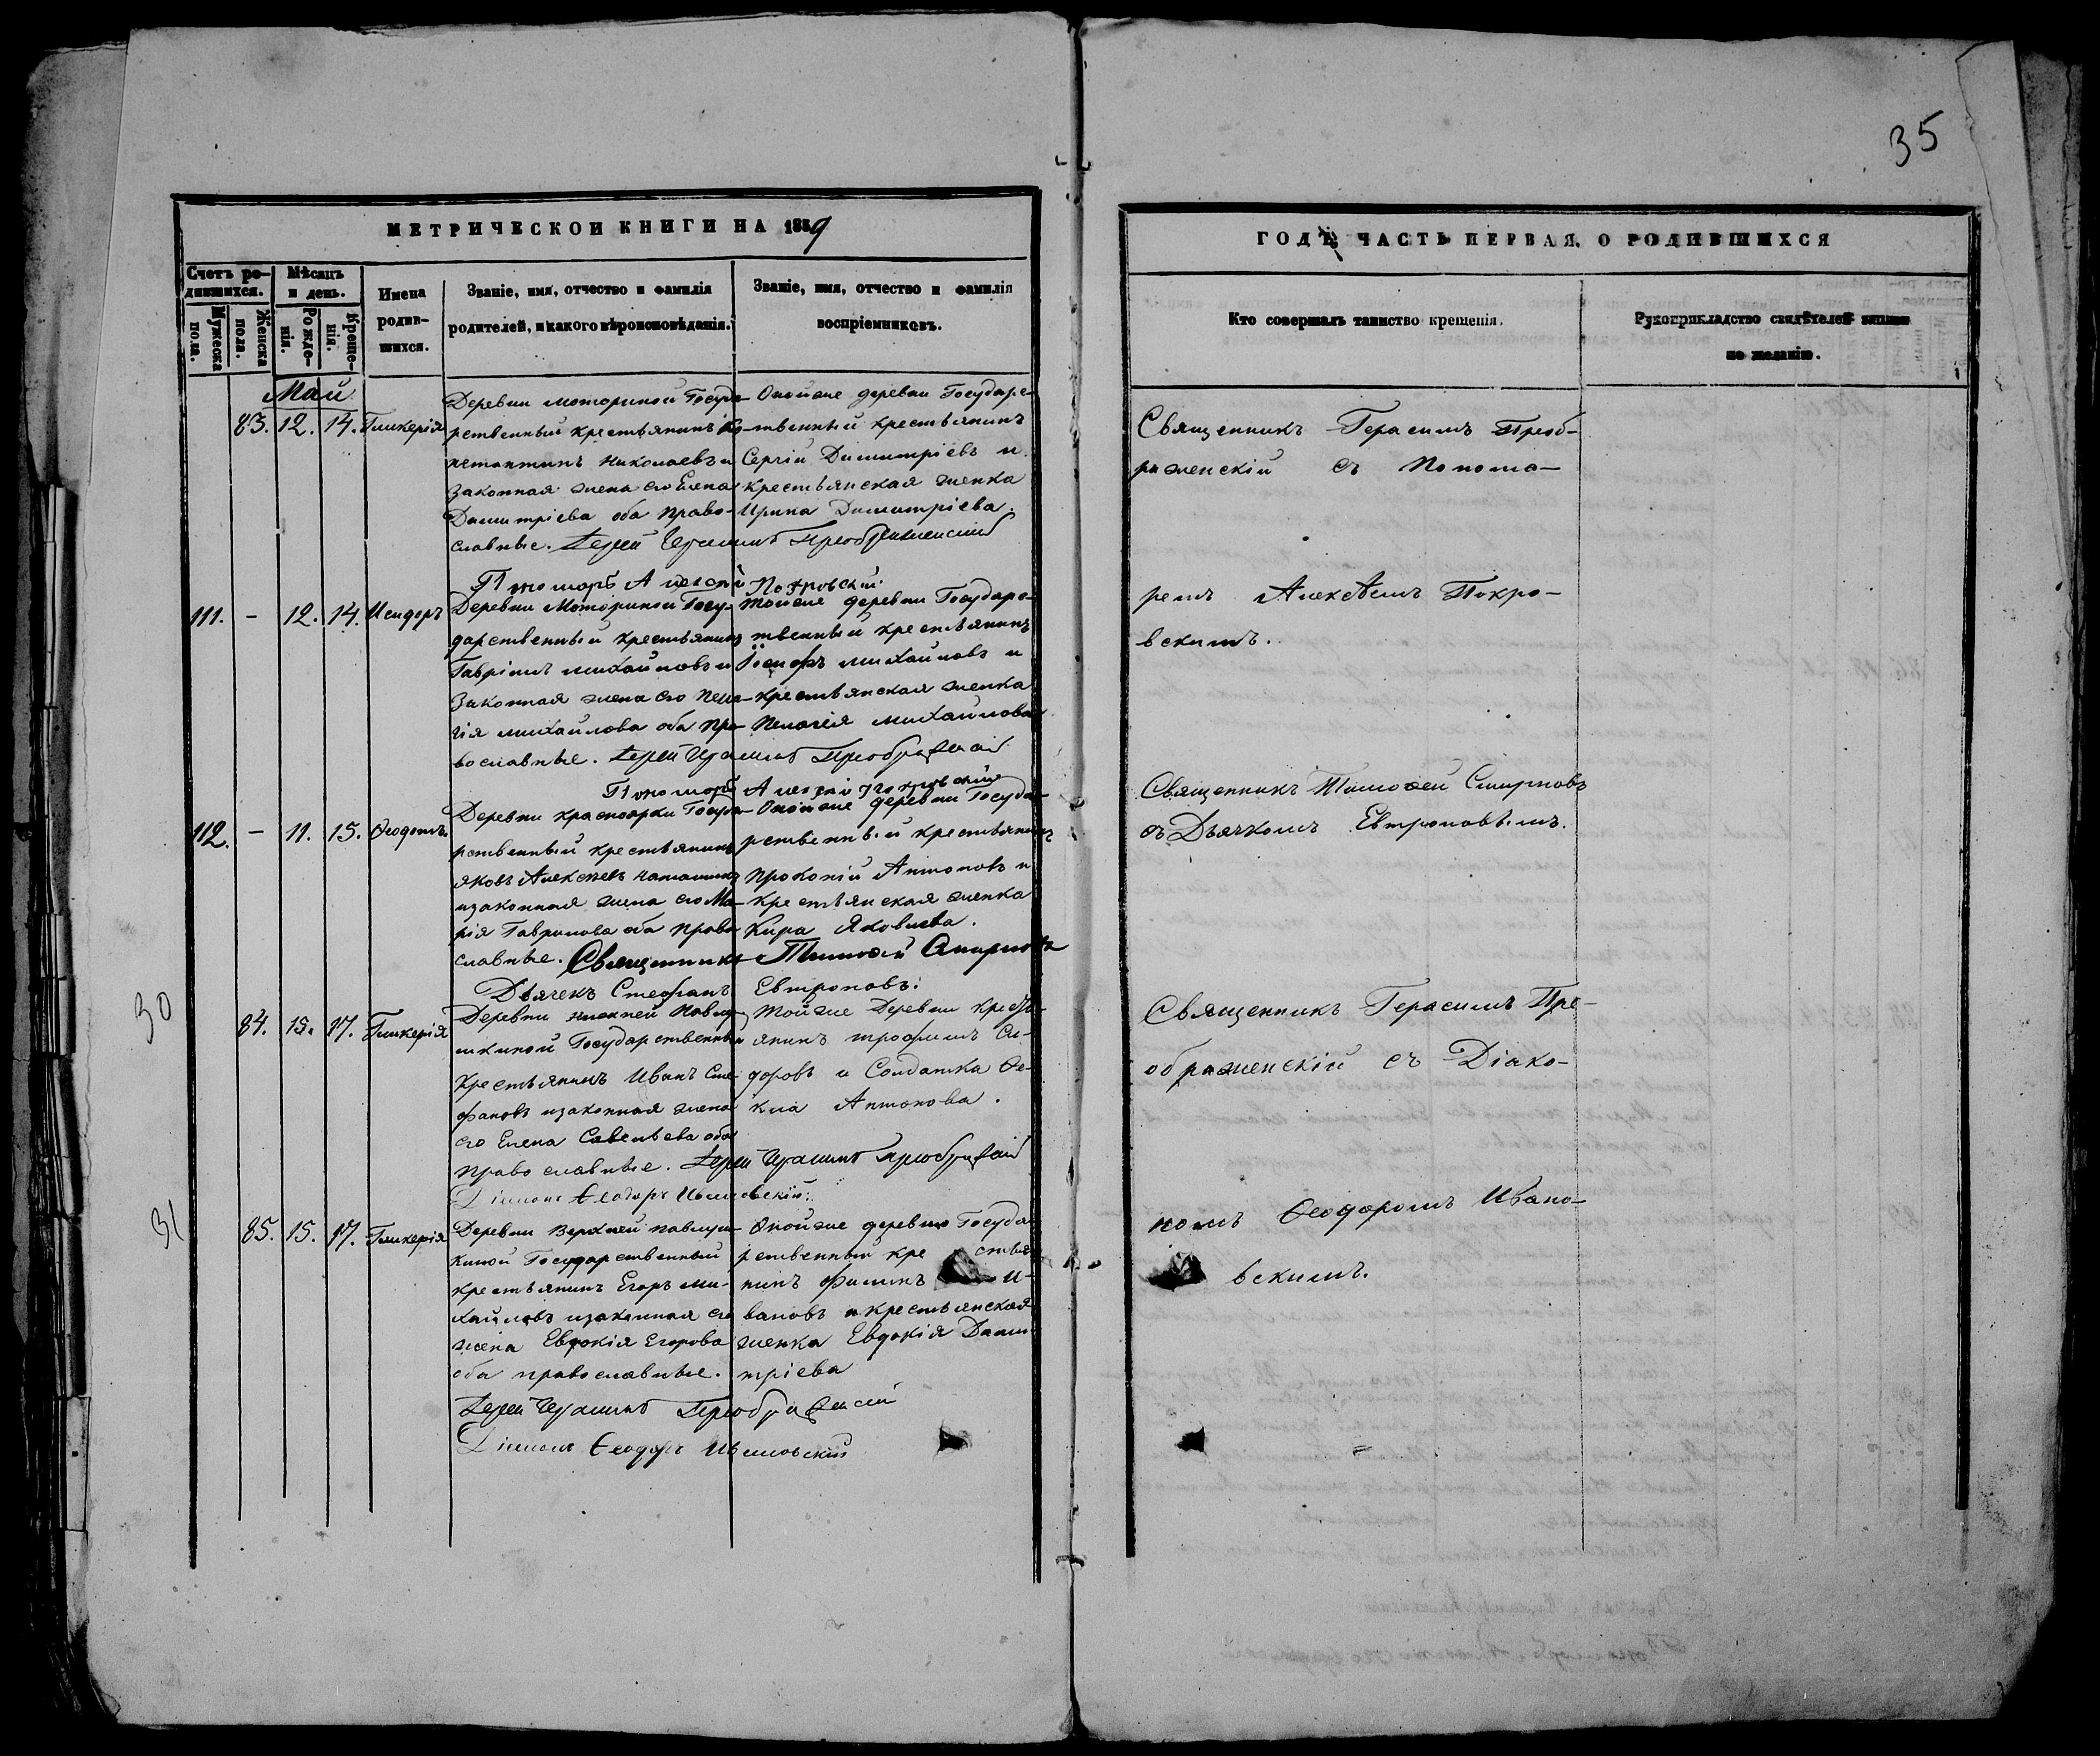 35
МЕТРИЧЕСКОИ КНИГИ НА 1859
Счетъ ро-
дившихся.
Мужеска
пола.
Женска
пола.
Мѣсяцъ
и день.
Рожде-
нія.
Креще-
нія.
Имена
родив-
шихся.
Званіе, имя, отчество и фамилія
родителей, и какого вѣроисповѣданія.
Званіе, имя, отчество и фамилія
воспріемниковъ.
Май
83. 12. 14. Гликерія
Деревни Моториной Госуда-
рственный крестьянинъ Ко-
нстантинъ Николаевъ и
законная жена его Елена
Димитріева оба право-
славные. Іерей Герасимъ Преображенскій
Оной же деревни Государс-
твенный крестьянинъ
Сергій Димитріевъ и
крестьянская женка
Ирина Димитріева.
Пономарь Алексей Покровскій
111. - 12. 14. Исидоръ
Деревни Моториной Госу-
дарственный крестьянинъ
Гавріилъ Михайловъ и
законная жена его Пела-
гія Михайлова оба пра-
вославные. Іерей Герасимъ Преображенскій
Той же деревни Государс-
твенный крестьянинъ
Іосифъ Михайловъ и
крестьянская женка
Пелагія Михайлова
Пономарь Алексѣй Покровскій
112. - 11. 15. Ѳеодотъ
Деревни Красноярки Госуда-
рственный крестьянинъ
Яковъ Алексѣевъ
и законная жена его Ма-
рія Гаврилова оба право
славные. Священникъ Тимоѳей Смирновъ
Оной же деревни Госуда-
рственный крестьянинъ
Прокопій Антоновъ и
крестьянская женка
Кира Яковлева.
Дьячекъ Стефанъ Евтроповъ.
30
84. 15. 17. Гликерія
Деревни Нижней Павлу-
шкиной Государственный
крестьянинъ Иванъ Сте-
фановъ и законная жена
его Елена Савельева оба
православные. Іерей Герасимъ Преображенскій
Той же деревни крестъ-
янинъ Трофимъ Си-
доровъ и Солдатка Ѳе-
кла Антонова.
Діаконъ Ѳеодоръ Ивановскій.
31
85. 15. 17. Гликерія
Деревни Верхней Павлуш-
киной Государственный
крестьянинъ Егоръ Ми-
хайловъ и законная его
жена Евдокія Егорова
оба православные.
Оной же деревни Госуда-
рственный кре стья
нинъ Филипъ И-
вановъ и крестьянская
женка Евдокія Дими-
тріева
Іерей Герасимъ Преображенскій
Діаконъ Ѳеодоръ Ивановскій
ГОДЪ, ЧАСТЬ ПЕРВАЯ, О РОДИВШИХСЯ
Кто совершалъ таинство крещенія.
Рукоприкладство свидѣтелей записи
по желанію.
Священникъ Герасимъ Преоб-
раженскій съ Понома-
ремъ Алексѣемъ Покро-
вскимъ.
Священникъ Тимоѳей Смирновъ
съ Дьячкомъ Евтроповымъ.
Священникъ Герасимъ Пре-
ображенскій съ Діако-
номъ Ѳеодоромъ Ивано-
вскимъ.